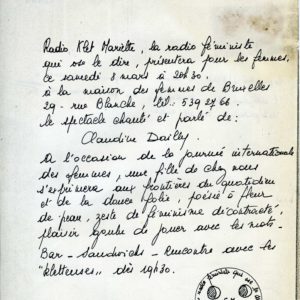 Radio Klet Mariette, la radio féministe
qui ose le dire, présentera pour les femmes,
ce samedi 8 mars à 20h30.
à la maison des femmes de Bruxelles
29 - rue Blanche, tél: 539 27 66.
le spectacle chanté et parlé de:
Claudine Dailly
A l'occasion de la journée internationale
des femmes, une fille de chez nous
s'exprimera aux frontières du quotidien
et de la douce folie, poésie à fleur
de peau, zeste de féminisme décontracté,
plaisir gentil de jouer avec les mots.
Bar - sandwichs - Rencontre avec les
"kletteuses" dès 19h30.